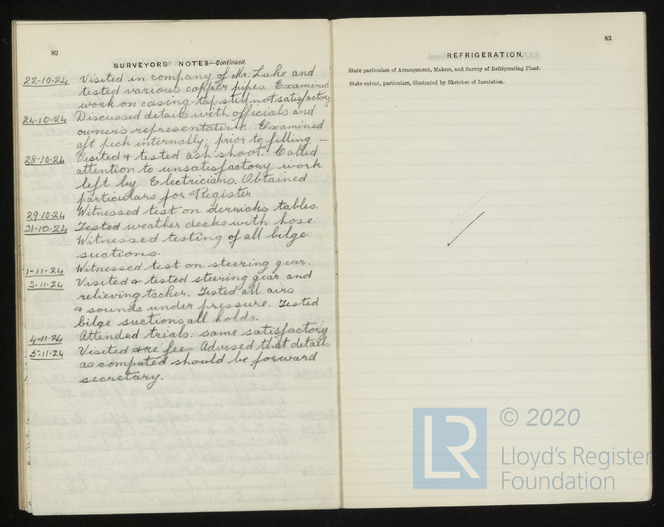 82
SURVEYORS' NOTES—Continued.
22-10-24 Visited in company of Mr. Luke and
tested various copper pipes. Examined
work on casing top, still not satisfactory
24-10-24 Discussed details with officials and
owner's representative. Examined
aft peck internally, prior to filling —
28-10-24 Visited & tested ash shoot. Called
attention to unsatisfactory work
left by Electricians. Obtained
particulars for Register
29.10.24 Witnessed test on derricks tables.
31-10-24 Tested weather decks with hose.
Witnessed testing of all bilge
suctions.
1-11-24 Witnessed test on steering gear.
3-11-24 Visited & tested steering gear and
relieving tacker. Tested all airs
& sounds under pressure. Tested
bilge suctions all holds.
4-11-24 Attended trials: same satisfactory
5-11-24 Visited re fees Advised that details
as computed should be forward
secretary.
83
REFRIGERATION.
State particulars of Arrangement, Makers, and Survey of Refrigerating Plant.
State extent, particulars, illustrated by Sketches of Insulation.
LR
© 2020
Lloyd's Register
Foundation